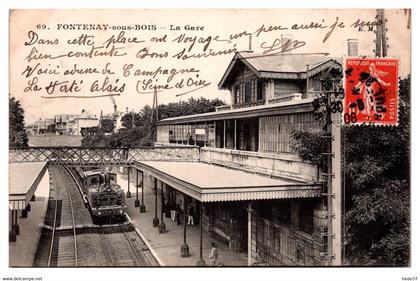 69. FONTENAY-sous-BOIS — La Gare
Dans cette place on Voyage un peu aussi je suis
bien contente Bon Souvenir
K. M.
Voici adresse de Campagne
La ferté Alais (Seine et Oise)
REPUBLIQUE FRANÇAISE
10
POSTES
08